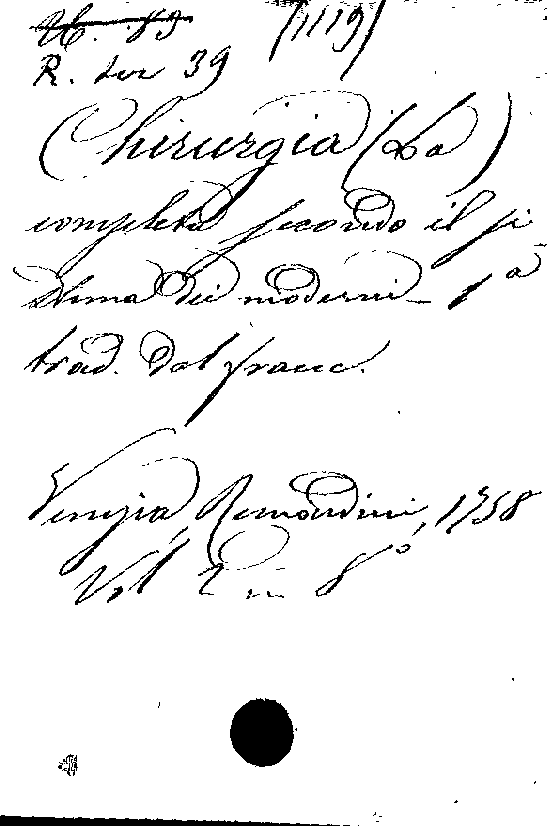 (1119)
R. ter 39
Chirurgia (La)
completa secondo il si
stema dei moderni_ 1ª
trad. dal franc.
Venezia, Remondini, 1758
Vol. 2 in 8°